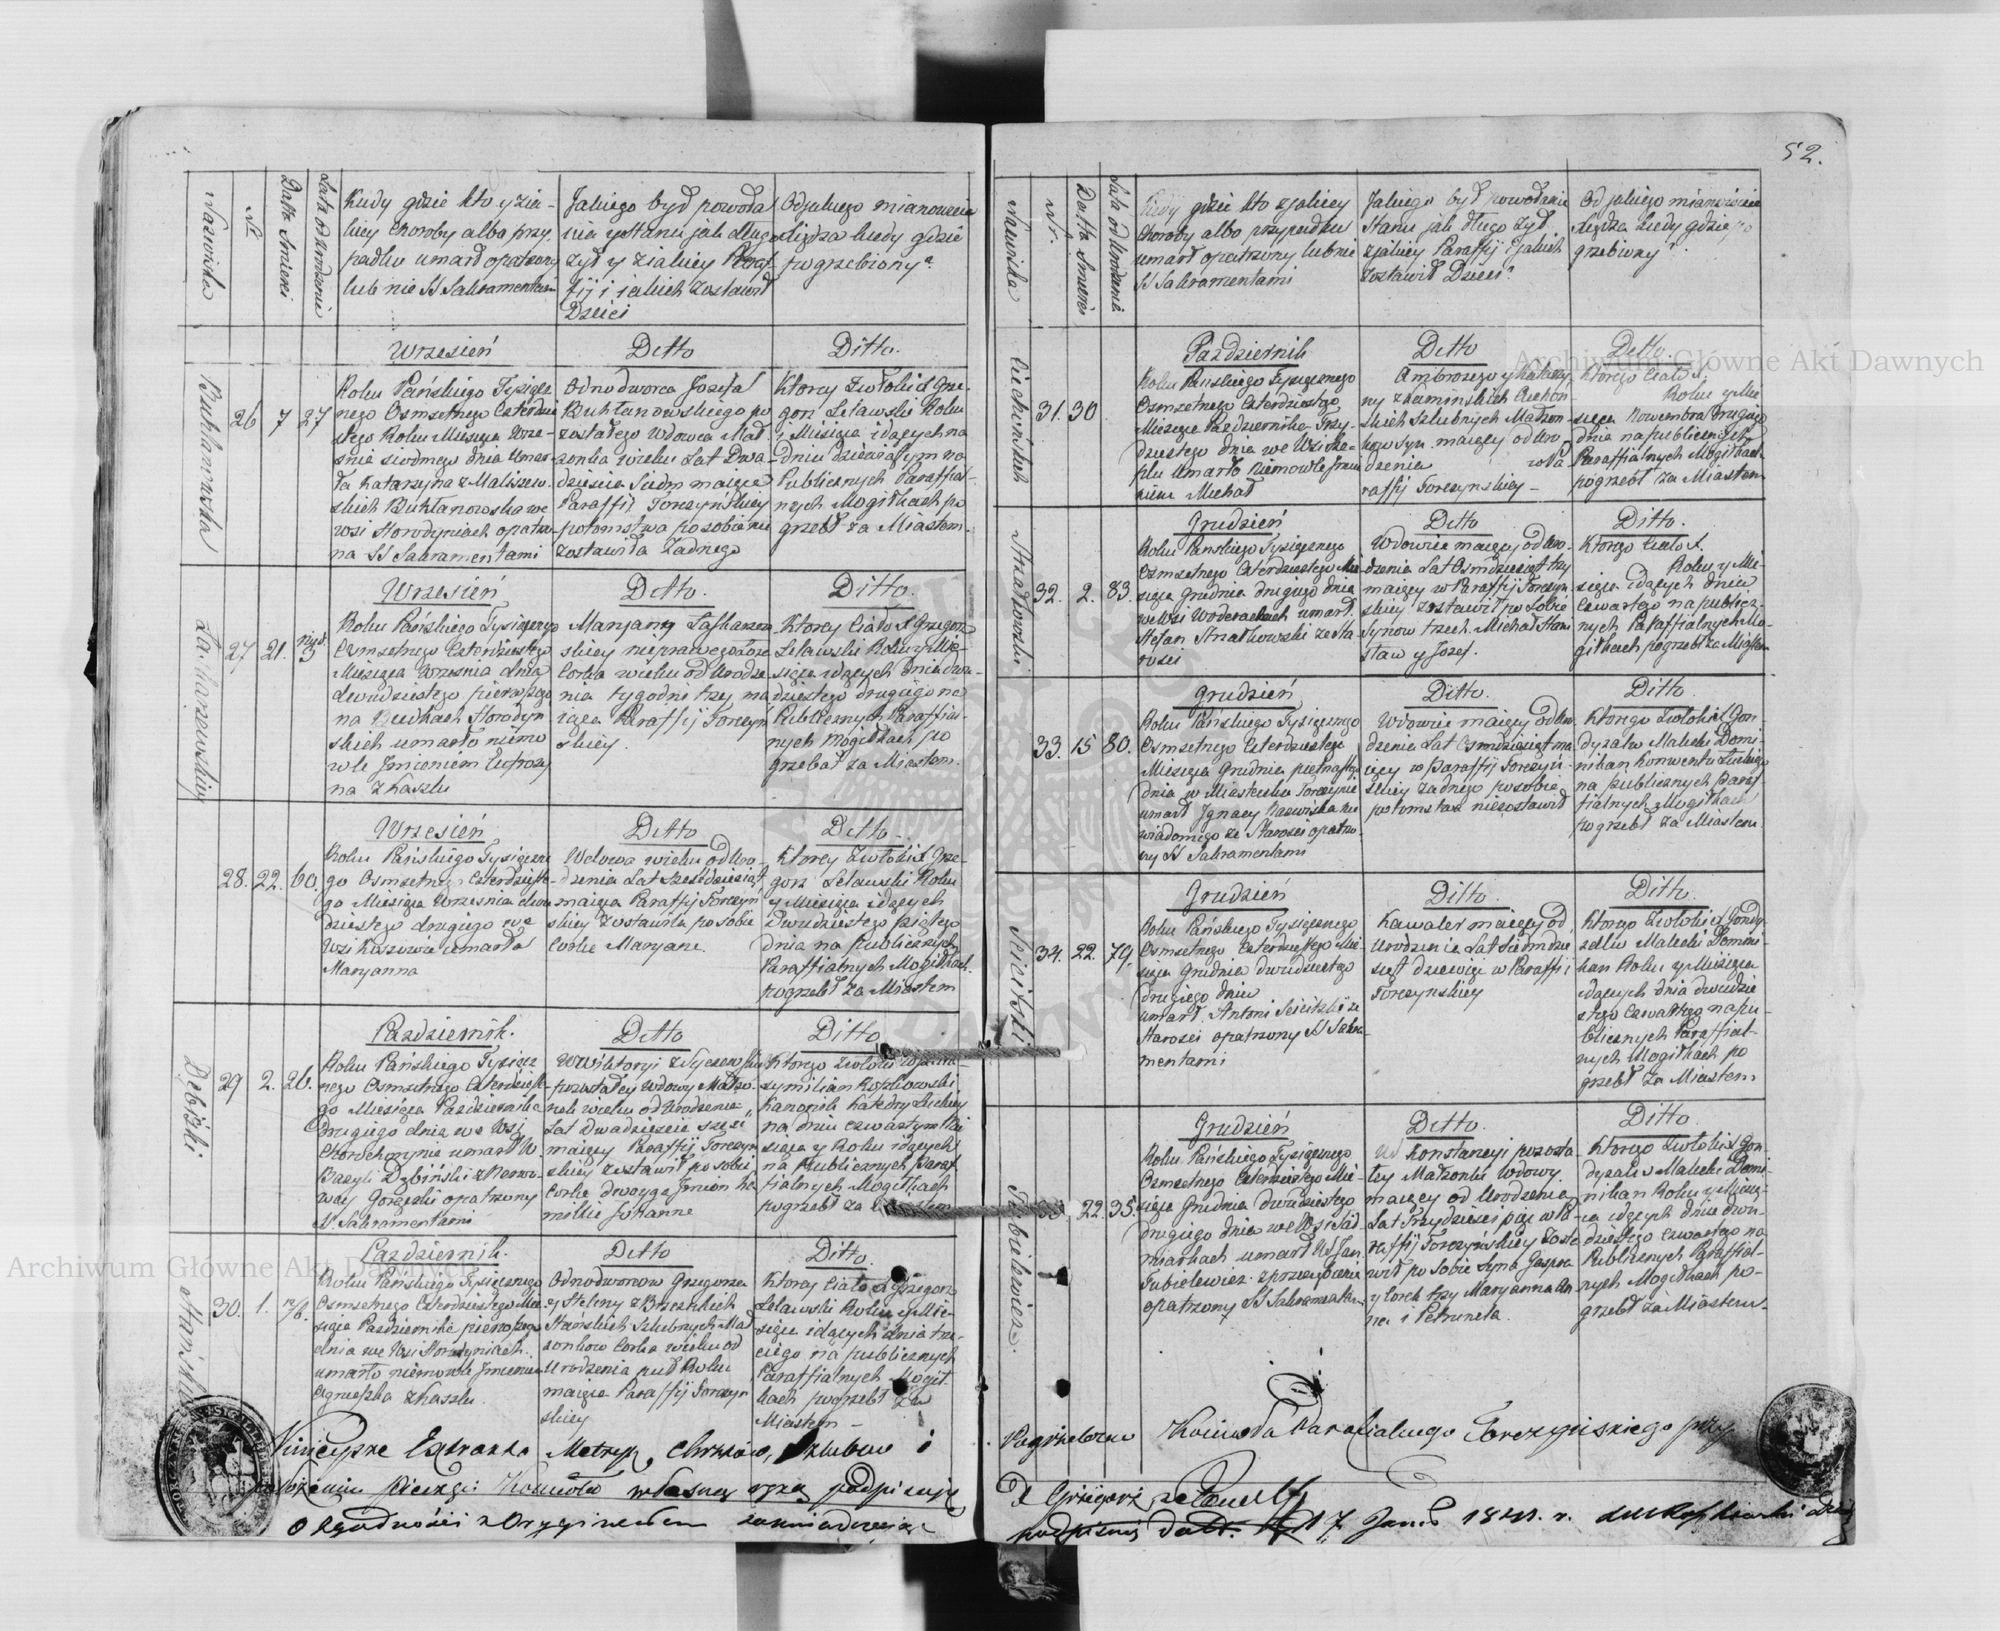 52.
Nazwiska
Nr.
Datta Smierci
Lata od urodzenia
Kiedy gdzie kto y z ia-
kiey Choroby albo przy
padku umarł opatrzony
lub nie SS Sakramentami
Jakiego był powoła
nia y stanu jak długo
żył y z iakiey Paraf
fij i iakich zostawił
Dzieci
Od jakiego mianowicie
Xiędza kiedy gdzie
pogrzebiony?
Buhłanowska
26
7
27
Wrzesień
Roku Pańskiego Tysiącz
nego Osmsetnego Czterdzie
stego Roku Miesiąca Wrze-
śnia siodmego dnia umar
ła Katarzyna z Maliszew
skich Buhłanowska we
wsi Horodyniach opatrzo-
na SS Sakramentami
Ditto
Odnodworca Jozefa
Buhłanowskiego po
zostałego Wdowca Mał
żonka wieku Lat Dwa-
dziescia Siedm maiąca
Paraffij Torczyńskiey
potomstwa po sobie nie
zostawiła żadnego
Ditto.
Ktorey Zwłoki X Grze-
gorz Lelawski Roku
i Miesiąca idących na
dniu dziewiątym na
Publicznych Paraffial-
nych Mogiłkach po
grzebł za Miastem.
27
21.
3
Wrzesień
Roku Pańskiego Tysiącznego
Osmsetnego Czterdziestego
Miesiąca Wrzesnia dnia
dwudziestego pierwszego
na Budkach Horodyn
skich umarło niemo
wle Jmieniem
na z Kaszlu
Ditto.
Maryanny
skiey nieprawego łoża
Corka wieku od Urodze
nia tygodni trzy ma
iąca Paraffij Torczyń
skiey.
Ditto.
Ktorey Ciało X Grzegorz
Lelawski Roku y Mie-
siąca idących dnia dwu-
dziestego drugiego na
Publicznych Paraffial-
nych Mogiłkach po
grzebał za Miastem.
28.
22.
60.
Wrzesień
Roku Pańskiego Tysiączne
go Osmsetnego Czterdzieste-
go Miesiąca Wrzesnia dwu
dziestego drugiego we
Wsi umarła
Maryanna
Ditto
Wdowa wieku od Uro-
dzenia Lat Sześćdziesiąt
maiąca Paraffij Torczyń
skiey Zostawiła po sobie
Corke Maryane.
Ditto.
Ktorey Zwłoki X Grze-
gorz Lelawski Roku
y Miesiąca idących
Dwudziestego piątego
Dnia na publicznych
Paraffialnych Mogiłkach
pogrzebł za Miastem
29
2.
26.
Pazdziernik.
Roku Pańskiego Tysiącz
nego Osmsetnego Czterdzieste
go Miesiąca Pazdziernika
Drugiego dnia we Wsi
umarł
Bazyli Dębiński z Nerwo-
wey Gorączki opatrzony
SS Sakramentami
Ditto
pozostałey Wdowy Małżo-
nek wieku od Urodzenia
Lat Dwadziescie szesc
maiący Paraffij Torczyn
skiey zostawił po sobie
Corke dwoyga Jmion Ka
millie Johanne
Ditto
Ktorego Zwłoki
Kanonik Katedry Łuckiey
na dniu czwartym Mie
siąca y Roku idących
na Publicznych Paraf
fialnych Mogiłkach
pogrzebł za Miastem
30.
1.
Pazdziernik.
Roku Pańskiego Tysiącznego
Osmsetnego Czterdziestego Mie
siąca Pazdziernika pierwszego
dnia we Wsi Horodyniach
umarło niemowle Jmieniem
Agnieszka z Kaszlu.
Ditto
Odnodworcow Grzegorza
Szlubnych Mał
żonkow Corka wieku od
Urodzenia puł Roku
maiąca Paraffij Torczyn
skiey
Ditto
Ktorey Ciało X Grzegorz
Lelawski Roku y Mie-
siąca idących dnia trze-
ciego na publicznych
Paraffialnych Mogił
kach pogrzebł za
Miastem –
Metryk, Chrztów, Szlubów i
własną ręką podpisuję
O zgodności z Oryginałem zaświadczając
Nazwiska
Nr.
Datta Smierci
Lata od Urodzenia
Kiedy gdzie kto z jakiey
Choroby albo przypadku
umarł opatrzony lub nie
SS Sakramentami
Jakiego był powołania
Stanu jak długo żył
z jakiey Paraffij y jakich
zostawił Dzieci?
Od jakiego mianowicie
Xiędza kiedy gdzie po
grzebiony?
Ciechoński
31.
30
Pazdziernik
Roku Pańskiego Tysiącznego
Osmsetnego Czterdziestego
Miesiąca Pazdziernika Trzy-
dziestego dnia we Wsi
umarło niemowle Jmie
niem Michał
Ditto
Ambrozego y Katarzy
ny z Kaminskich Ciechon-
skich Szlubnych Małżon-
kow Syn maiący od Uro
dzenia roku Pa
raffij Torczynskiey –
Ditto.
Ktorego Ciało X.
Roku y Mie-
siąca Nowembra drugiego
dnia na publicznych
Paraffialnych Mogiłkach
pogrzebł za Miastem
Strzałkowski
32.
2.
83.
Grudzień
Roku Pańskiego Tysiącznego
Osmsetnego Czterdziestego Mie
siąca Grudnia drugiego dnia
we Wsi umarł
Stefan Strzałkowski ze Sta
rosci
Ditto
Wdowiec maiący od Uro-
dzenia Lat Osmdziesiąt trzy
maiący w Paraffij Torczyn
skiey zostawił po sobie
Synow trzech Michał Stani
sław y Jozef.
Ditto.
Ktorego Ciało X.
Roku y Mie-
siąca idących dnia
Czwartego na publicz-
nych Paraffialnych Mo-
giłkach pogrzebł za Miastem
33.
15
80.
Grudzień
Roku Pańskiego Tysiącznego
Osmsetnego Czterdziestego
Miesiąca Grudnia piętnastego
dnia w Miasteczku Torczynie
umarł Jgnacy Nazwiska nie
wiadomego ze Starosci opatrzo-
ny SS Sakramentami
Ditto.
Wdowiec maiący od Uro-
dzenia Lat Osmdziesiąt ma
iący w Paraffij Torczyń-
skiey żadnego po sobie
potomstwa niezostawił
Ditto.
Ktorego Zwłoki X Gon-
dysalw Malecki Domi-
nikan Konwentu Łuckiego
na publicznych Paraf-
fialnych Mogiłkach
pogrzebł za Miastem
34.
22.
79.
Grudzień
Roku Pańskiego Tysiącznego
Osmsetnego Czterdziestego Mie-
siąca Grudnia dwudziestego
drugiego dnia
umarł Antoni ze
Starosci opatrzony SS Sakra
mentami
Ditto.
Kawaler maiący od
Urodzenia Lat Siedmdzie
siąt dziewięć w Paraffij
Torczynskiey
Ditto.
Ktorego Zwłoki X Gondy-
salw Malecki Domini-
kan Roku y Miesiąca
idących dnia dwudzie
stego czwartego na pu-
blicznych Paraffial-
nych Mogiłkach po
grzebł za Miastem
Jubielewicz.
35
22.
35.
Grudzień
Roku Pańskiego Tysiącznego
Osmsetnego Czterdziestego Mie-
siąca Grudnia Dwudziestego
drugiego dnia we Wsi Sad-
umarł Jan
Jubielewicz z przeziębienia
opatrzony SS Sakramentami
Ditto.
Konstancyi pozosta
łey Małżonki Wdowy
maiący od Urodzenia
Lat Trzydziesci pięc w Pa
raffij Torczyńskiey Zosta
wił po sobie Syna Jaspra
y Corek trzy Maryanna An
na i Petrunela.
Ditto.
Ktorego Zwłoki X Gon-
dysalw Malecki Domi
nikan Roku y Miesią-
ca idących dnia dwu-
dziestego czwartego na
Publicznych Paraffial-
nych Mogiłkach po-
grzebł za Miastem.
Pogrzebow Kościoła Parafialnego Torczynskiego przy
X Grzegorz
podpisuię Datt. 17 Jan. 1841. r.
Archiwum Główne Akt Dawnych
Archiwum Główne Akt Dawnych